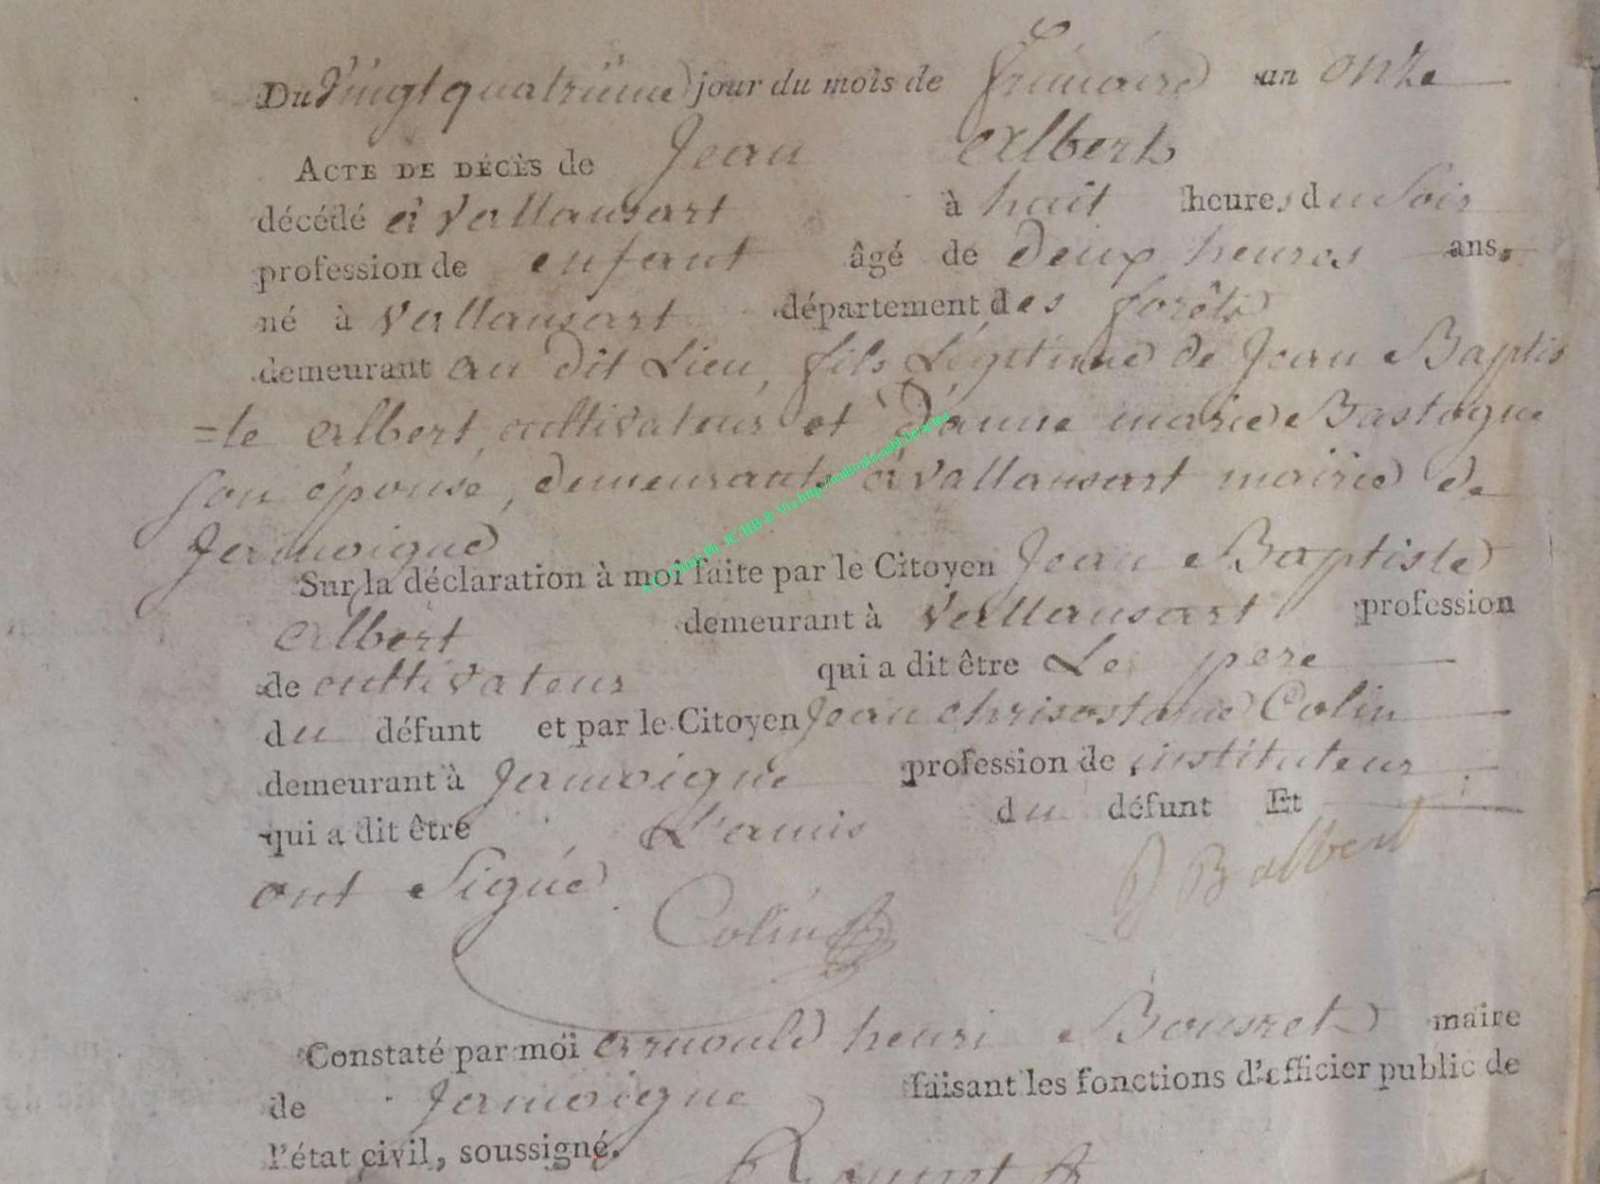 Du Vingt quatrième jour du mois de frimaire an onze
ACTE DE DÉCÈS de Jean Albert
décédé à Vallansart à huit heures du Soir
profession de enfant âgé de deux heures ans.
né à Vallansart département des forêts
demeurant au dit Lieu, fils Légitime de Jean Baptis
=te Albert cultivateur et d'anne marie Bastogne
son épouse, demeurants à Vallansart mairie de
Jamoigne
Sur la déclaration à moi faite par le Citoyen Jean Baptiste
Albert demeurant à Vallansart profession
de cultivateur qui a dit être Le pere
du défunt et par le Citoyen Jean chrisostome Colin
demeurant à Jamoigne profession de instituteur
qui a dit être L'amis du défunt Et
ont Signé
J B albert
Colin
Constaté par moi arnould henri maire
de Jamoigne faisant les fonctions d'officier public de
l'état civil, soussigné.